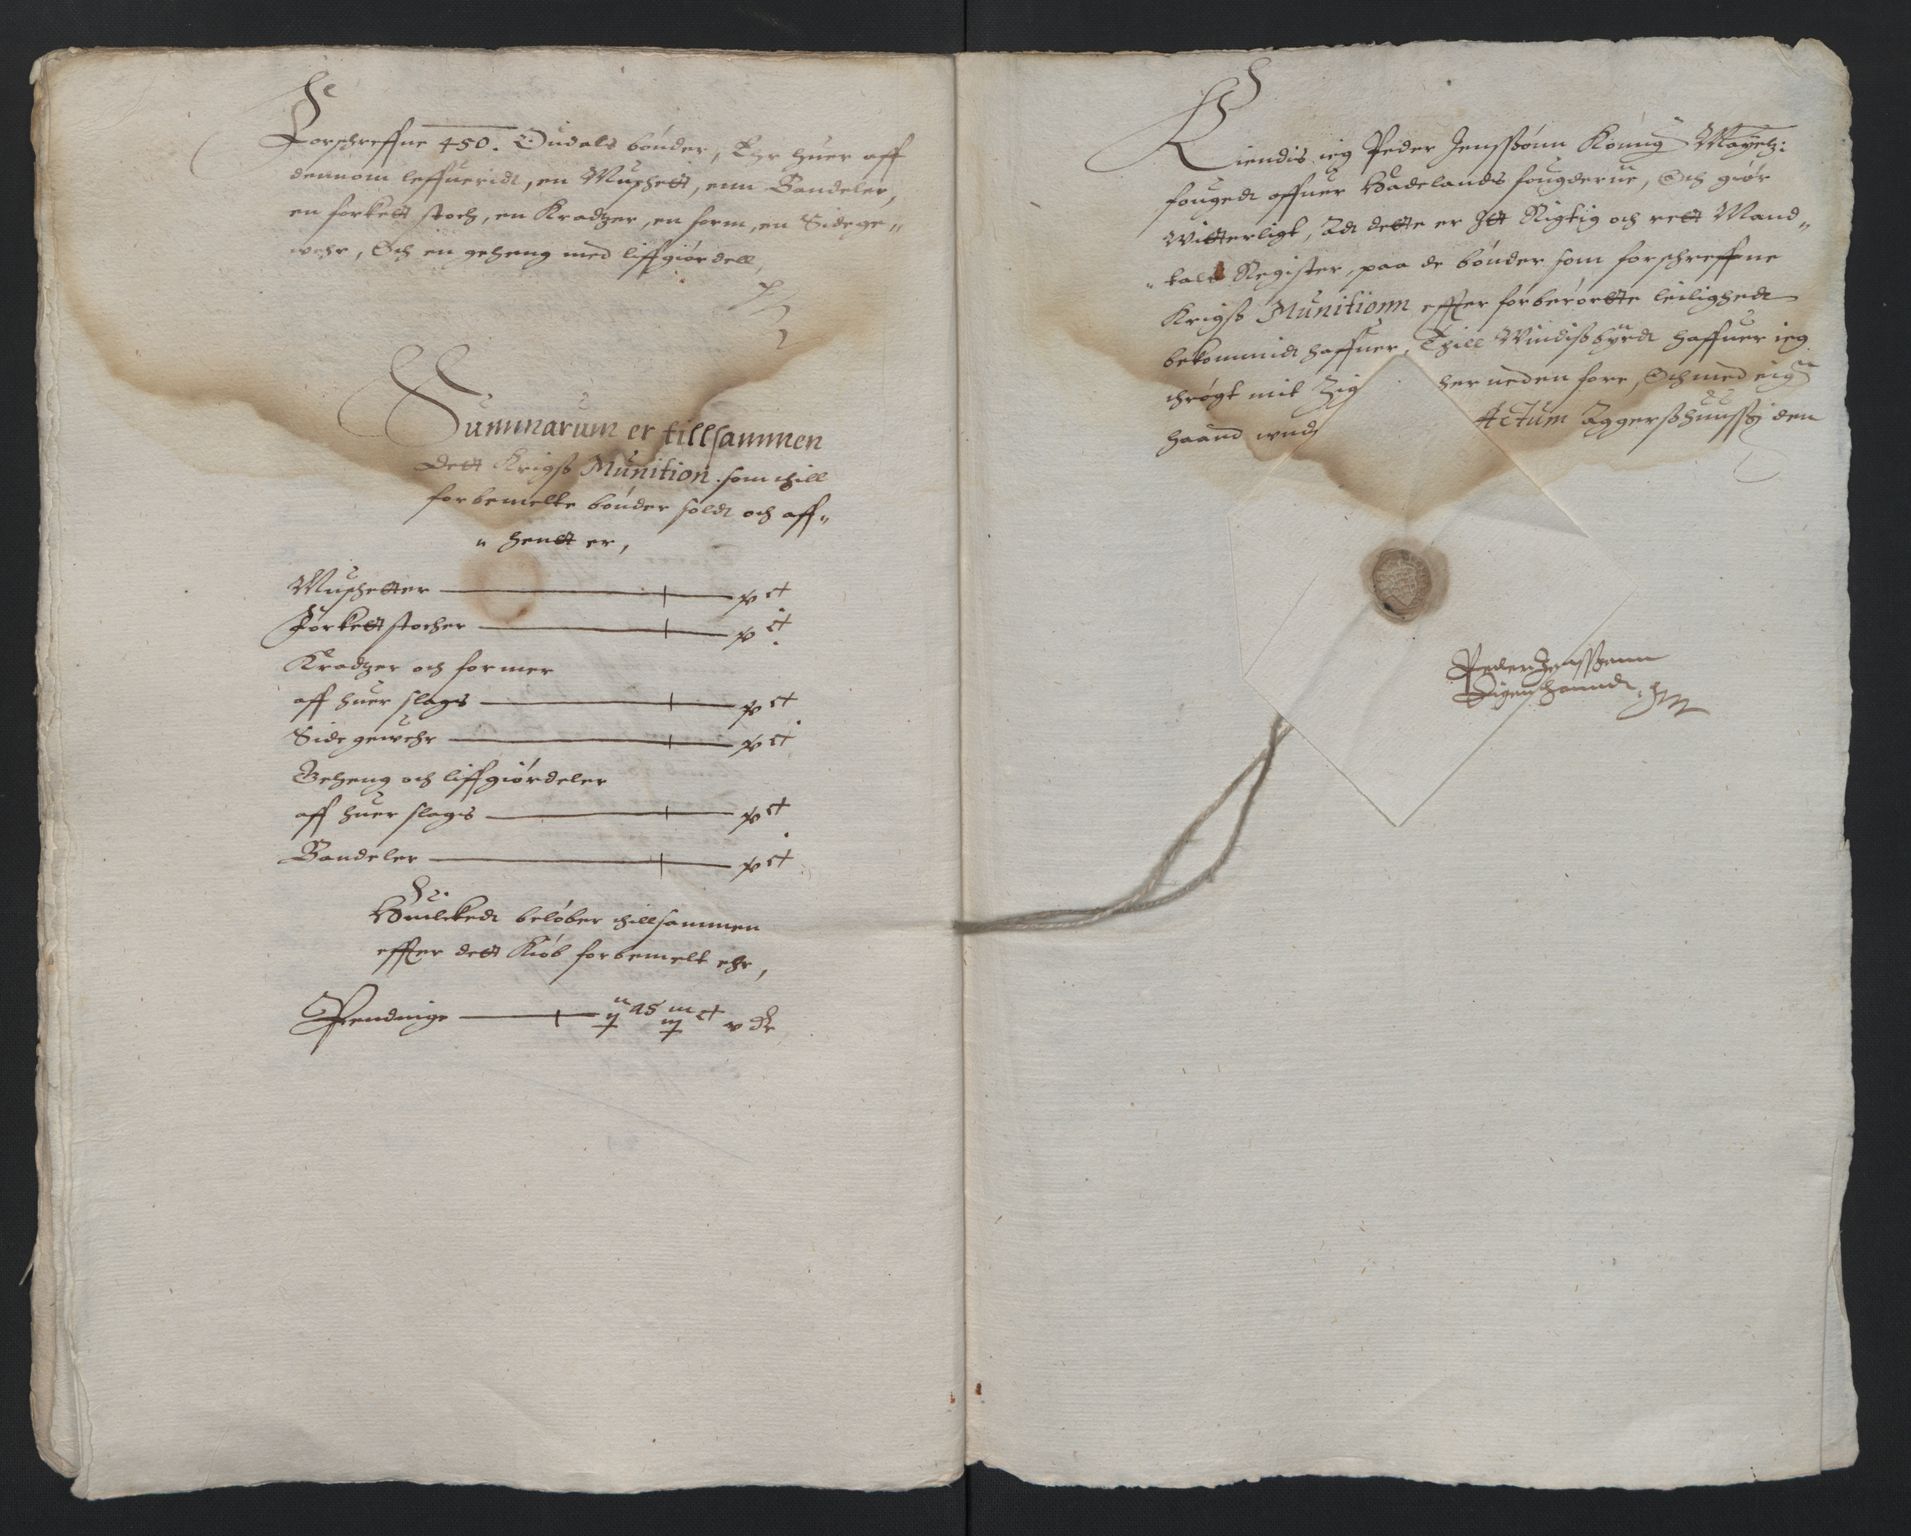 Forschreffne 450. Oudals bønder, Ehr huer aff
dennom leffueridt, en Muschett, enn Bandeler,
en forkett stoch, en Kradzer, en form, en Sidege„
wehr, Och en geheng med liffgiørdell,
Summarum er tillsammen
Dett Krigss Munition som thill
forbemelte bønder soldt och aff„
„ hentt er,
Muschetter
Forkett stocher
Kradzer och former
aff huer slags
Side gewehr
Geheng och liffgiørdeler
aff huer slags
Bandeler
Huilckedt beløber thillsammen
effter dett Kiøb forbemelt ehr,
Pendinge
Kiendis ieg Peder Jenssønn Konng Mayetz:
fougedt offuer Hadelands fougderne, Och giør
Witterligt, Adt dette er Itt Rigtig och rett Mand„
„tals Register, paa de bønder som forschreffne
Krigss Munitionn effter forberørtte leilighedt
bekommidt haffuer, Thill Windissbyrdt haffuer ieg
thrøgt mit Zig her neden fore, Och med eigen
haand und Actum Aggersshuuss den
Peder Jenssønn
Eigen haandt